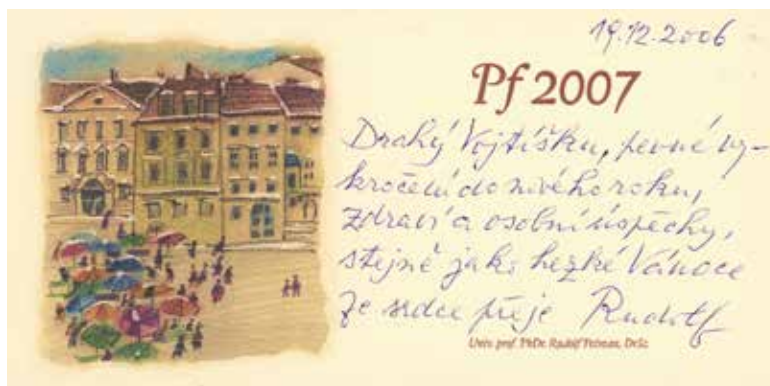 19.12.2006
Pf 2007
Drahý Vojtíšku, pevné vy-
kročení do nového roku,
zdraví a osobní úspěchy,
stejně jako hezké Vánoce
ze srdce přeje Rudolf
Univ. prof. PhDr. Rudolf DrSc.